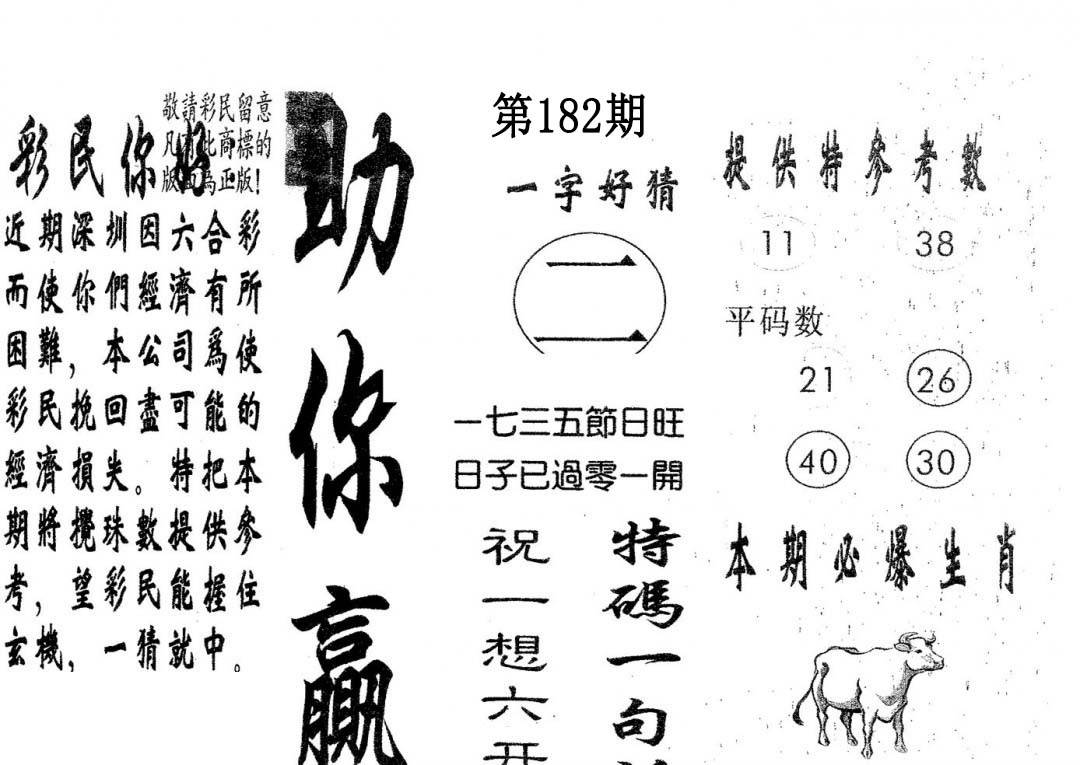 敬請彩民留意
凡有此商標的
版面為正版!
彩民你好
近期深圳因六合彩
而使你們經濟有所
困難，本公司爲使
彩民挽回盡可能的
經濟損失。特把本
期將攪珠數提供參
考，望彩民能握住
玄機，一猜就中。
助你贏
第182期
一字好猜
二
一七三五節日旺
日子已過零一開
特碼一句
祝一想六开
提供特參考數
11 38
平码数
21 26
40 30
本期必爆生肖